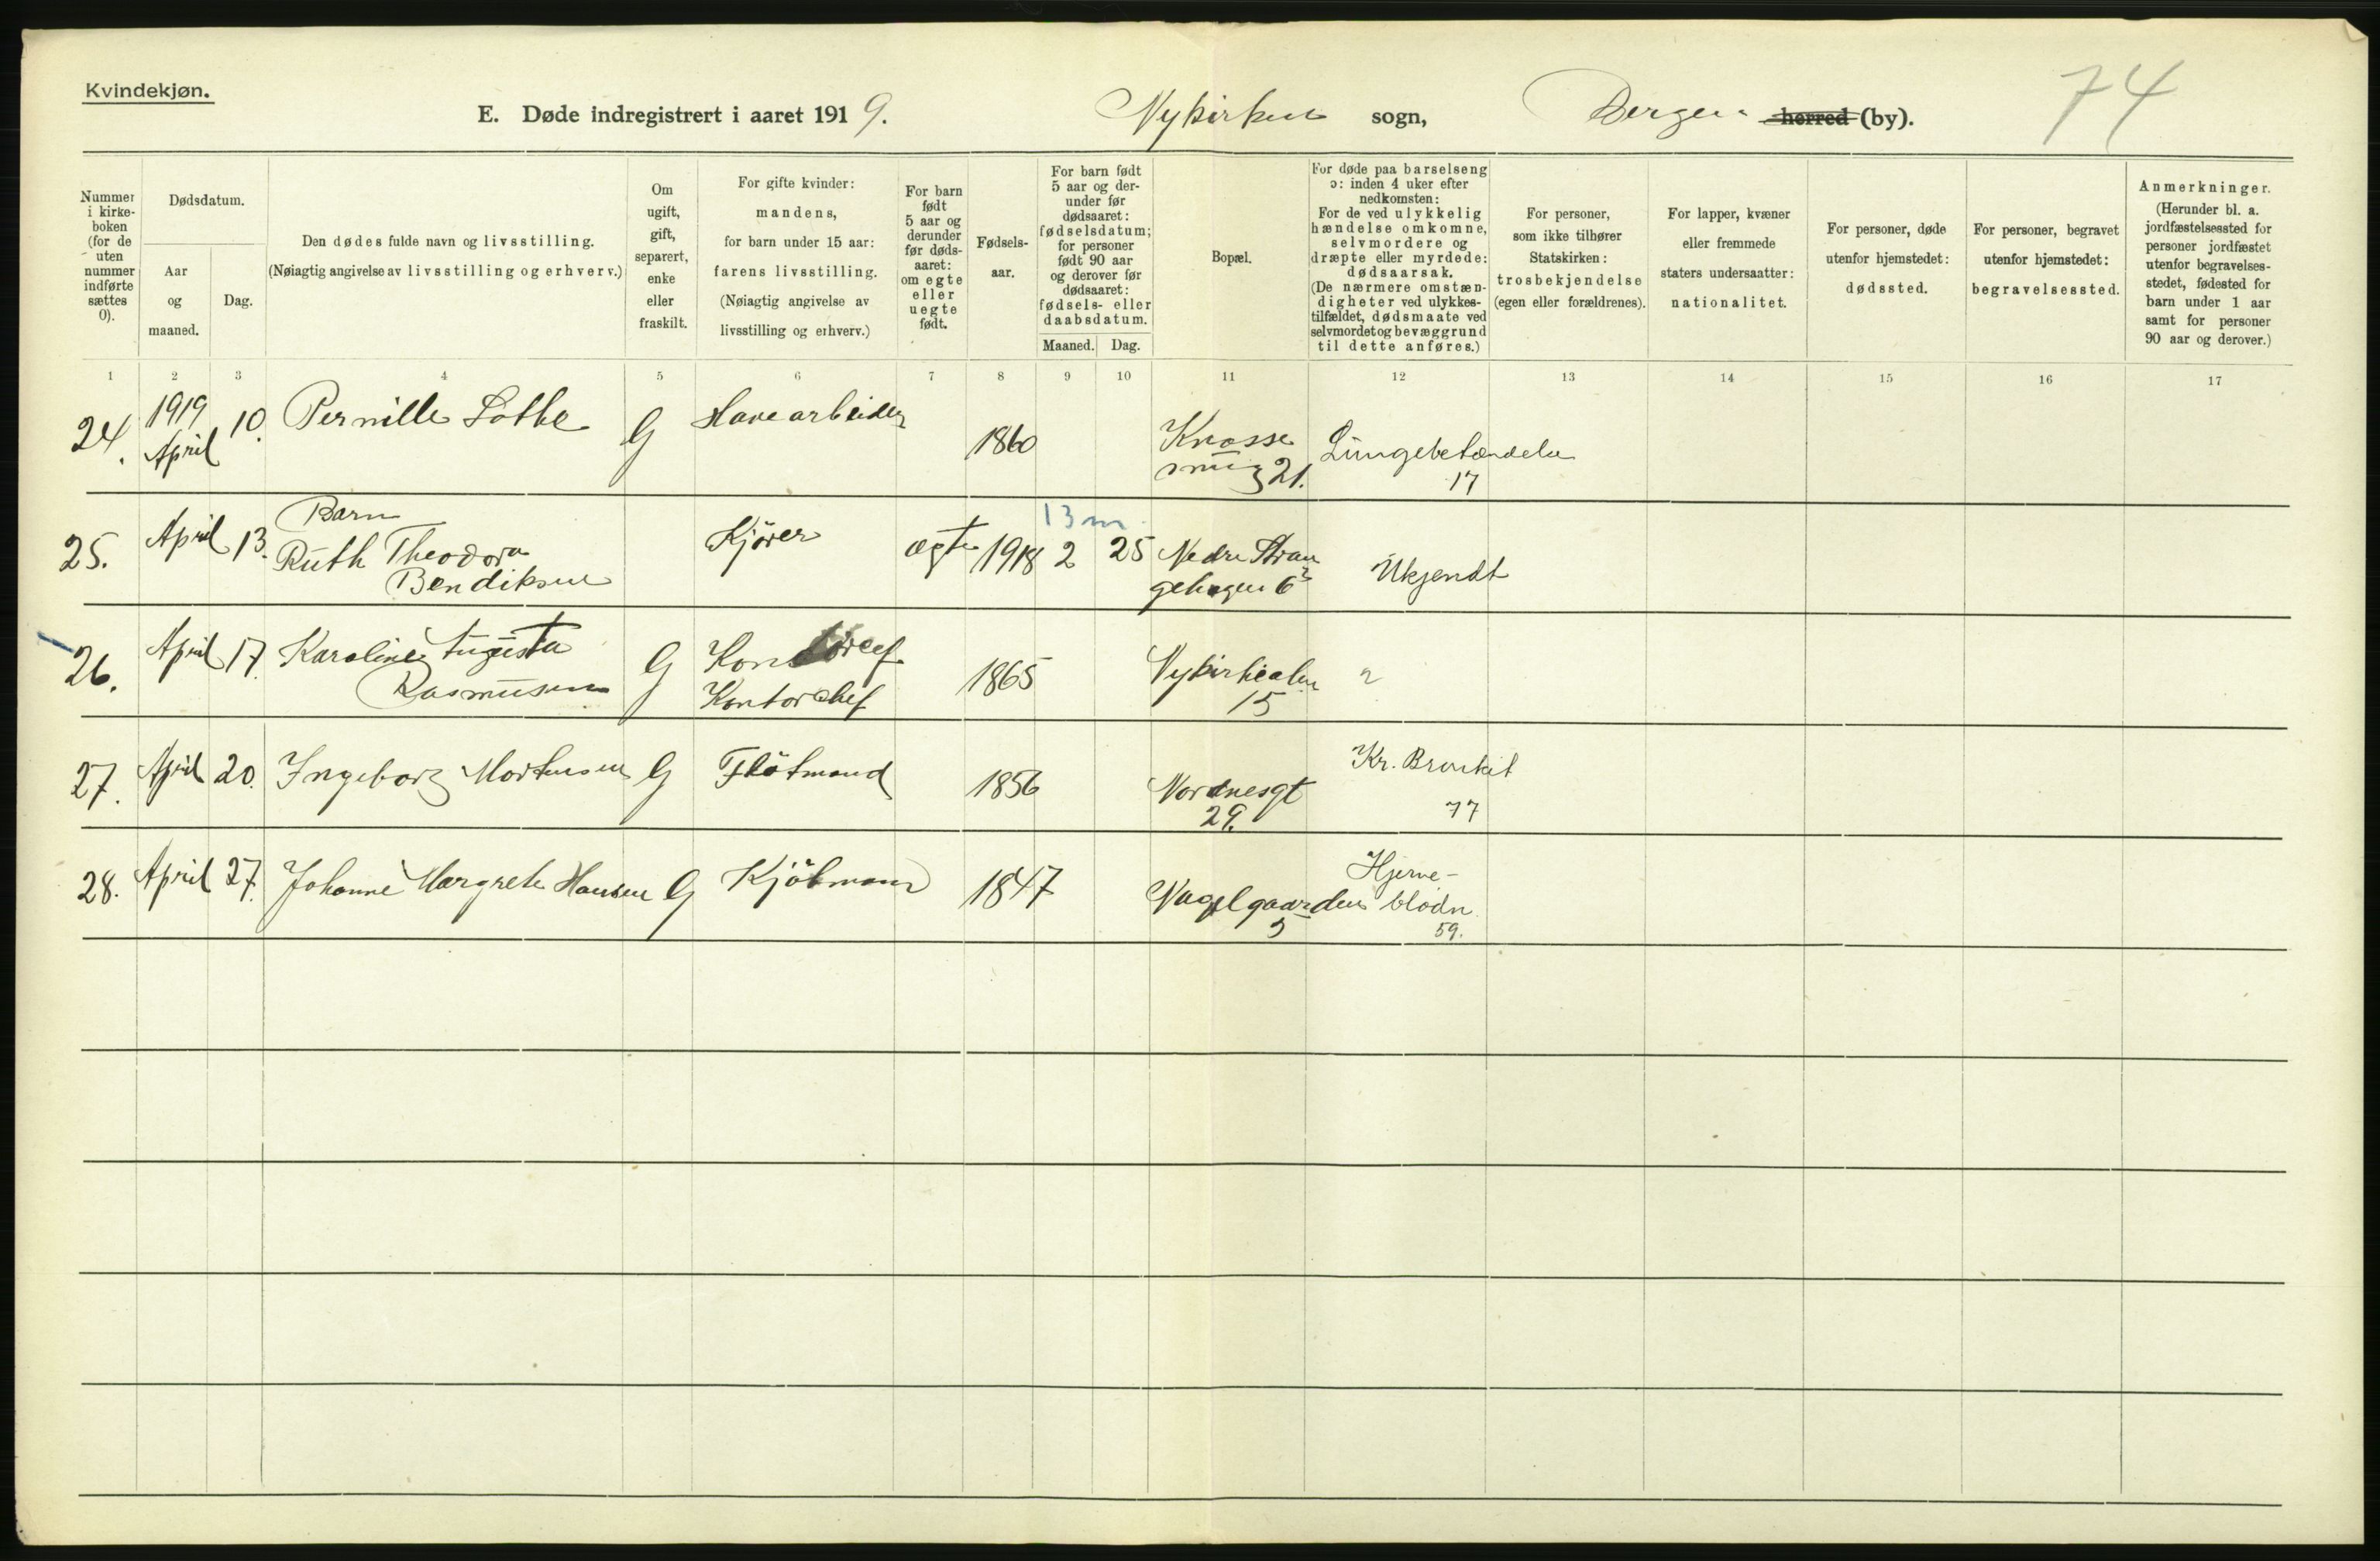 Kvindekjøn.
E. Døde indregistrert i aaret 1919. Nykirken sogn, Bergen herred (by). 74
Nummer i kirke-boken (for de uten nummer indførte sættes 0).
Dødsdatum.
Aar og maaned.
Dag.
Den dødes fulde navn og livsstilling.
(Nøiagtig angivelse av livsstilling og erhverv.)
Om ugift, gift, separert, enke eller fraskilt.
For gifte kvinder: mandens, for barn under 15 aar: farens livsstilling.
(Nøiagtig angivelse av livsstilling og erhverv.)
For barn født 5 aar og derunder før døds-aaret: om egte eller uegte født.
Fødsels-aar.
For barn født 5 aar og der-under før dødsaaret: fødselsdatum; for personer født 90 aar og derover før dødsaaret: fødsels- eller daabsdatum.
Maaned. Dag.
Bopæl.
For døde paa barselseng ɔ: inden 4 uker efter nedkomsten:
For de ved ulykkelig hændelse omkomne, selvmordere og dræpte eller myrdede: dødsaarsak.
(De nærmere omstæn-digheter ved ulykkes-tilfældet, dødsmaate ved selvmordet og bevæggrund til dette anføres.)
For personer, som ikke tilhører Statskirken: trosbekjendelse (egen eller forældrenes).
For lapper, kvæner eller fremmede staters undersaatter: nationalitet.
For personer, døde utenfor hjemstedet: dødssted.
For personer, begravet utenfor hjemstedet: begravelsessted.
Anmerkninger.
(Herunder bl. a. jordfæstelsessted for personer jordfæstet utenfor begravelses-stedet, fødested for barn under 1 aar samt for personer 90 aar og derover.)
1 2 3 4 5 6 7 8 9 10 11 12 13 14 15 16 17
24. 1919 April 10. Pernille Lothe G Havearbeider 1860 Knøsse smug 21. Lungebetændelse 17
25. April 13. Barn
Ruth Theodora
Bendiksen Kjører ægte 1918 13 m. 2 25 Nedre Stran
gehagen 6 Ukjendt
26. April 17. Karoline Augusta
Rasmussen G Kontorchef 1865 Nykirkealm
15 ?
27. April 20. Ingeborg Mortensen G Flötmand 1856 Nordnesgt
29. Kr. Bronkit
77
28. April 27. Johanne Margrete Hansen G Kjöbmann 1847 Nagelgaarden
5 Hjerne-
blødn.
59.